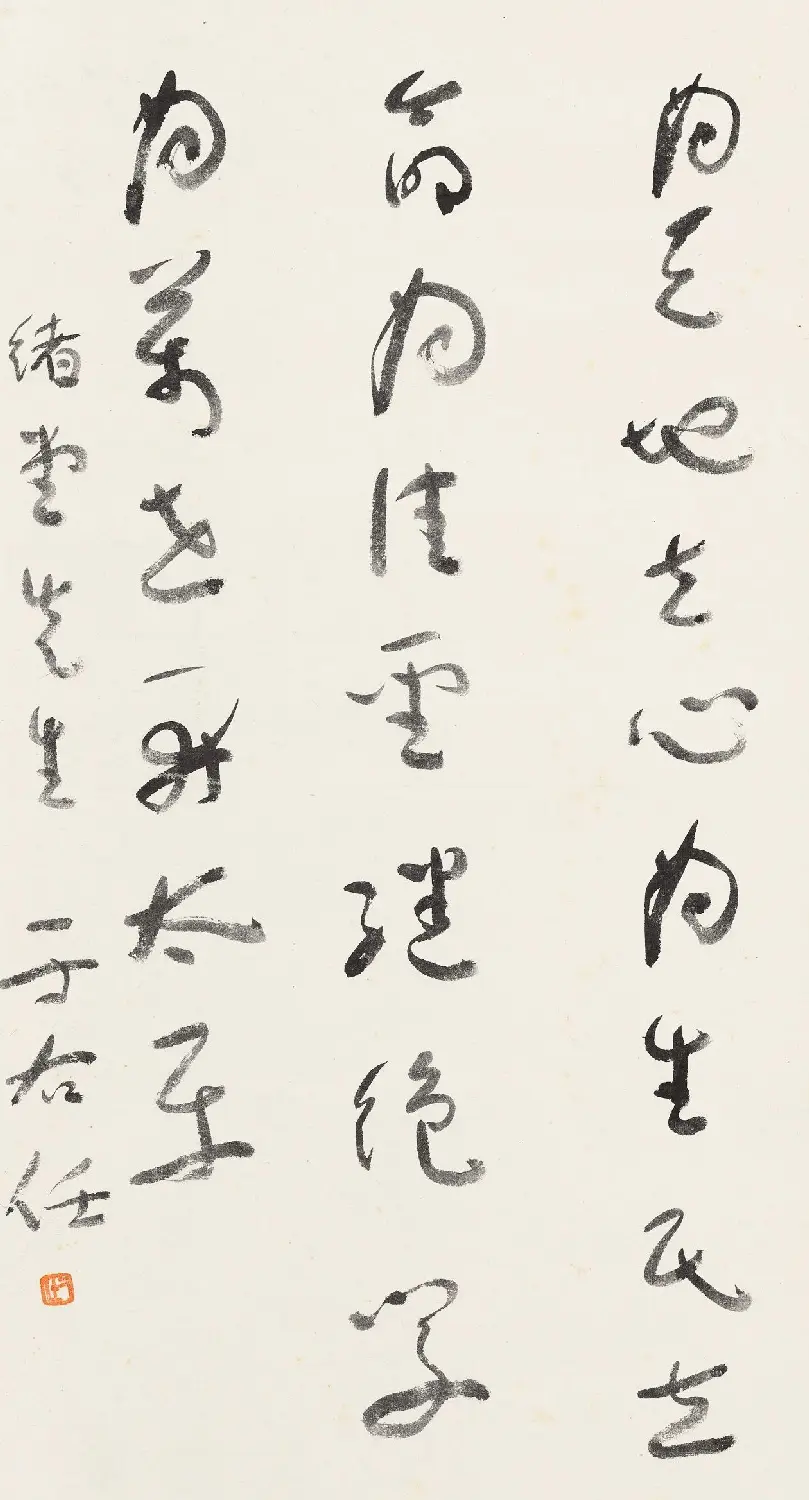 為天地立心為生民立
命為往聖繼絕學
為萬世開太平
緒堂先生 于右任
右任